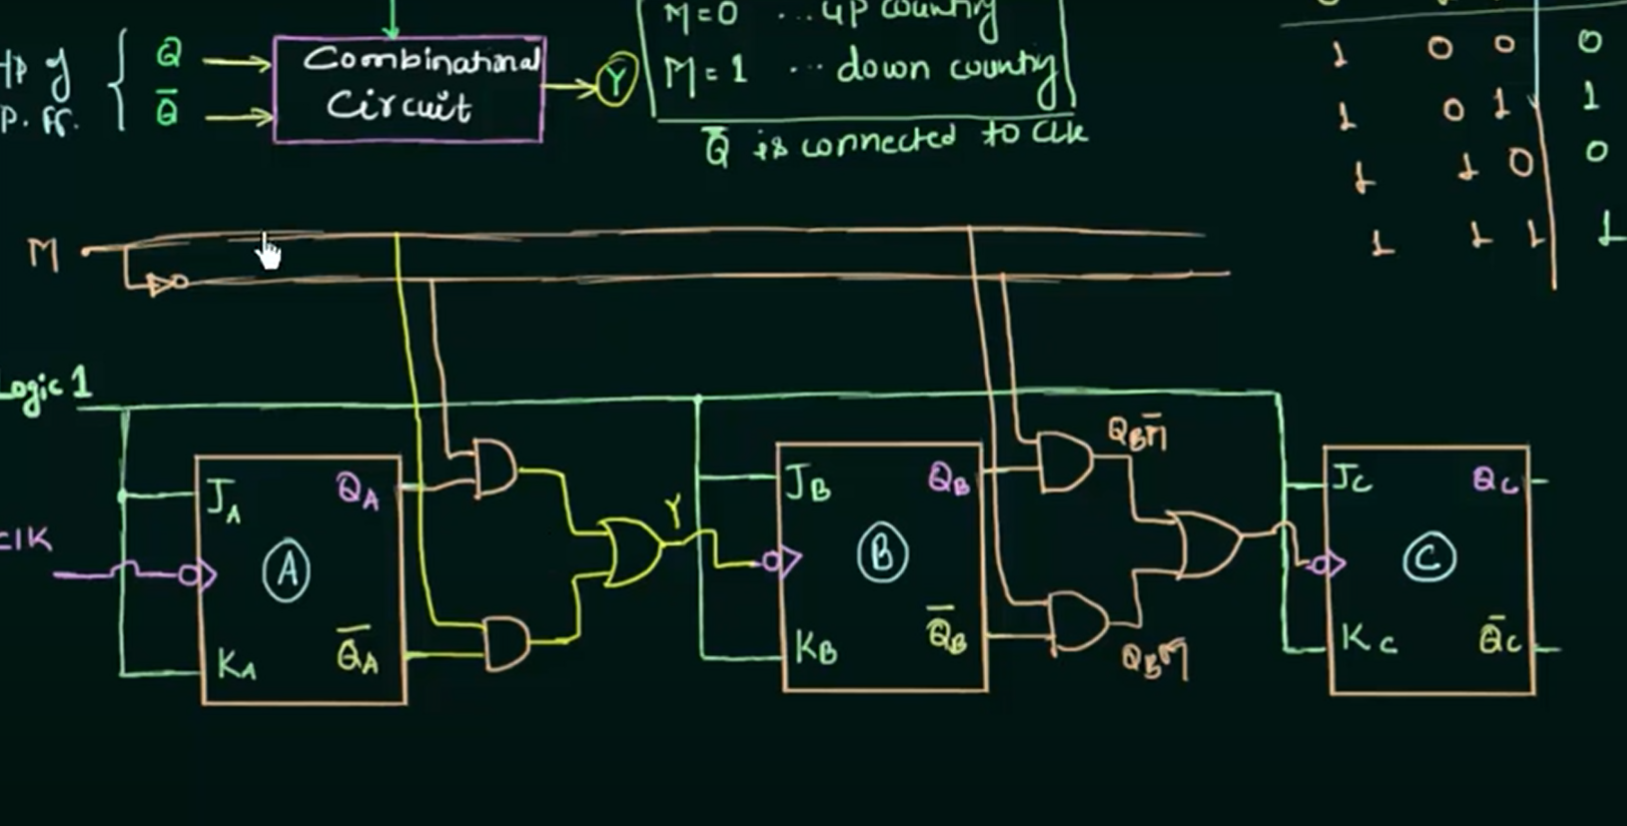 M=0 ... up counting
Q
Q̅
Combinational
Circuit
Y
M=1 ... down counting
Q̅ is connected to Clk
P. FF.
1 0 0 0
1 0 1 1
1 1 0 0
1 1 1 1
M
Logic 1
CLK
J_A Q_A
A
K_A Q̅_A
Y
J_B Q_B
B
K_B Q̅_B
Q_B M̅
Q_B M
J_C Q_C
C
K_C Q̅_C